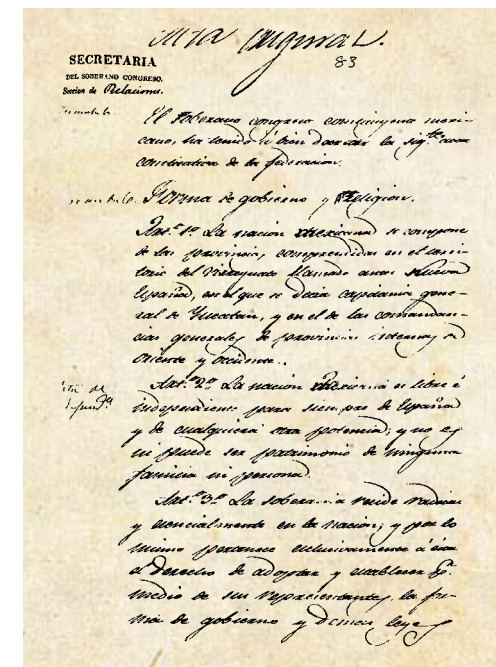 Acta original.
83
SECRETARIA
DEL SOBERANO CONGRESO.
Seccion de Relaciones.
El Soberano congreso constituyente mexi-
cano, ha tenido á bien decretar la sig.te acta
constitutiva de la federacion.
Forma de gobierno y Religion.
Art.o 1.o La nacion mexicana se compone
de las provincias, comprendidas en el terri-
torio del Vireynato llamado antes Nueva
España, en el que se decia capitania gene-
ral de Yucatan, y en el de las comandan-
cias generales de provincias internas de
Oriente y occidente.
Art.o 2.o La nacion mexicana es libre é
independiente para siempre de España
y de cualquiera otra potencia; y no es
ni puede ser patrimonio de ninguna
familia ni persona.
Art.o 3.o La soberania reside radical
y esencialmente en la nacion; y por lo
mismo pertenece esclusivamente á esta
el derecho de adoptar y establecer p.r
medio de sus representantes, la for-
ma de gobierno y demas leyes